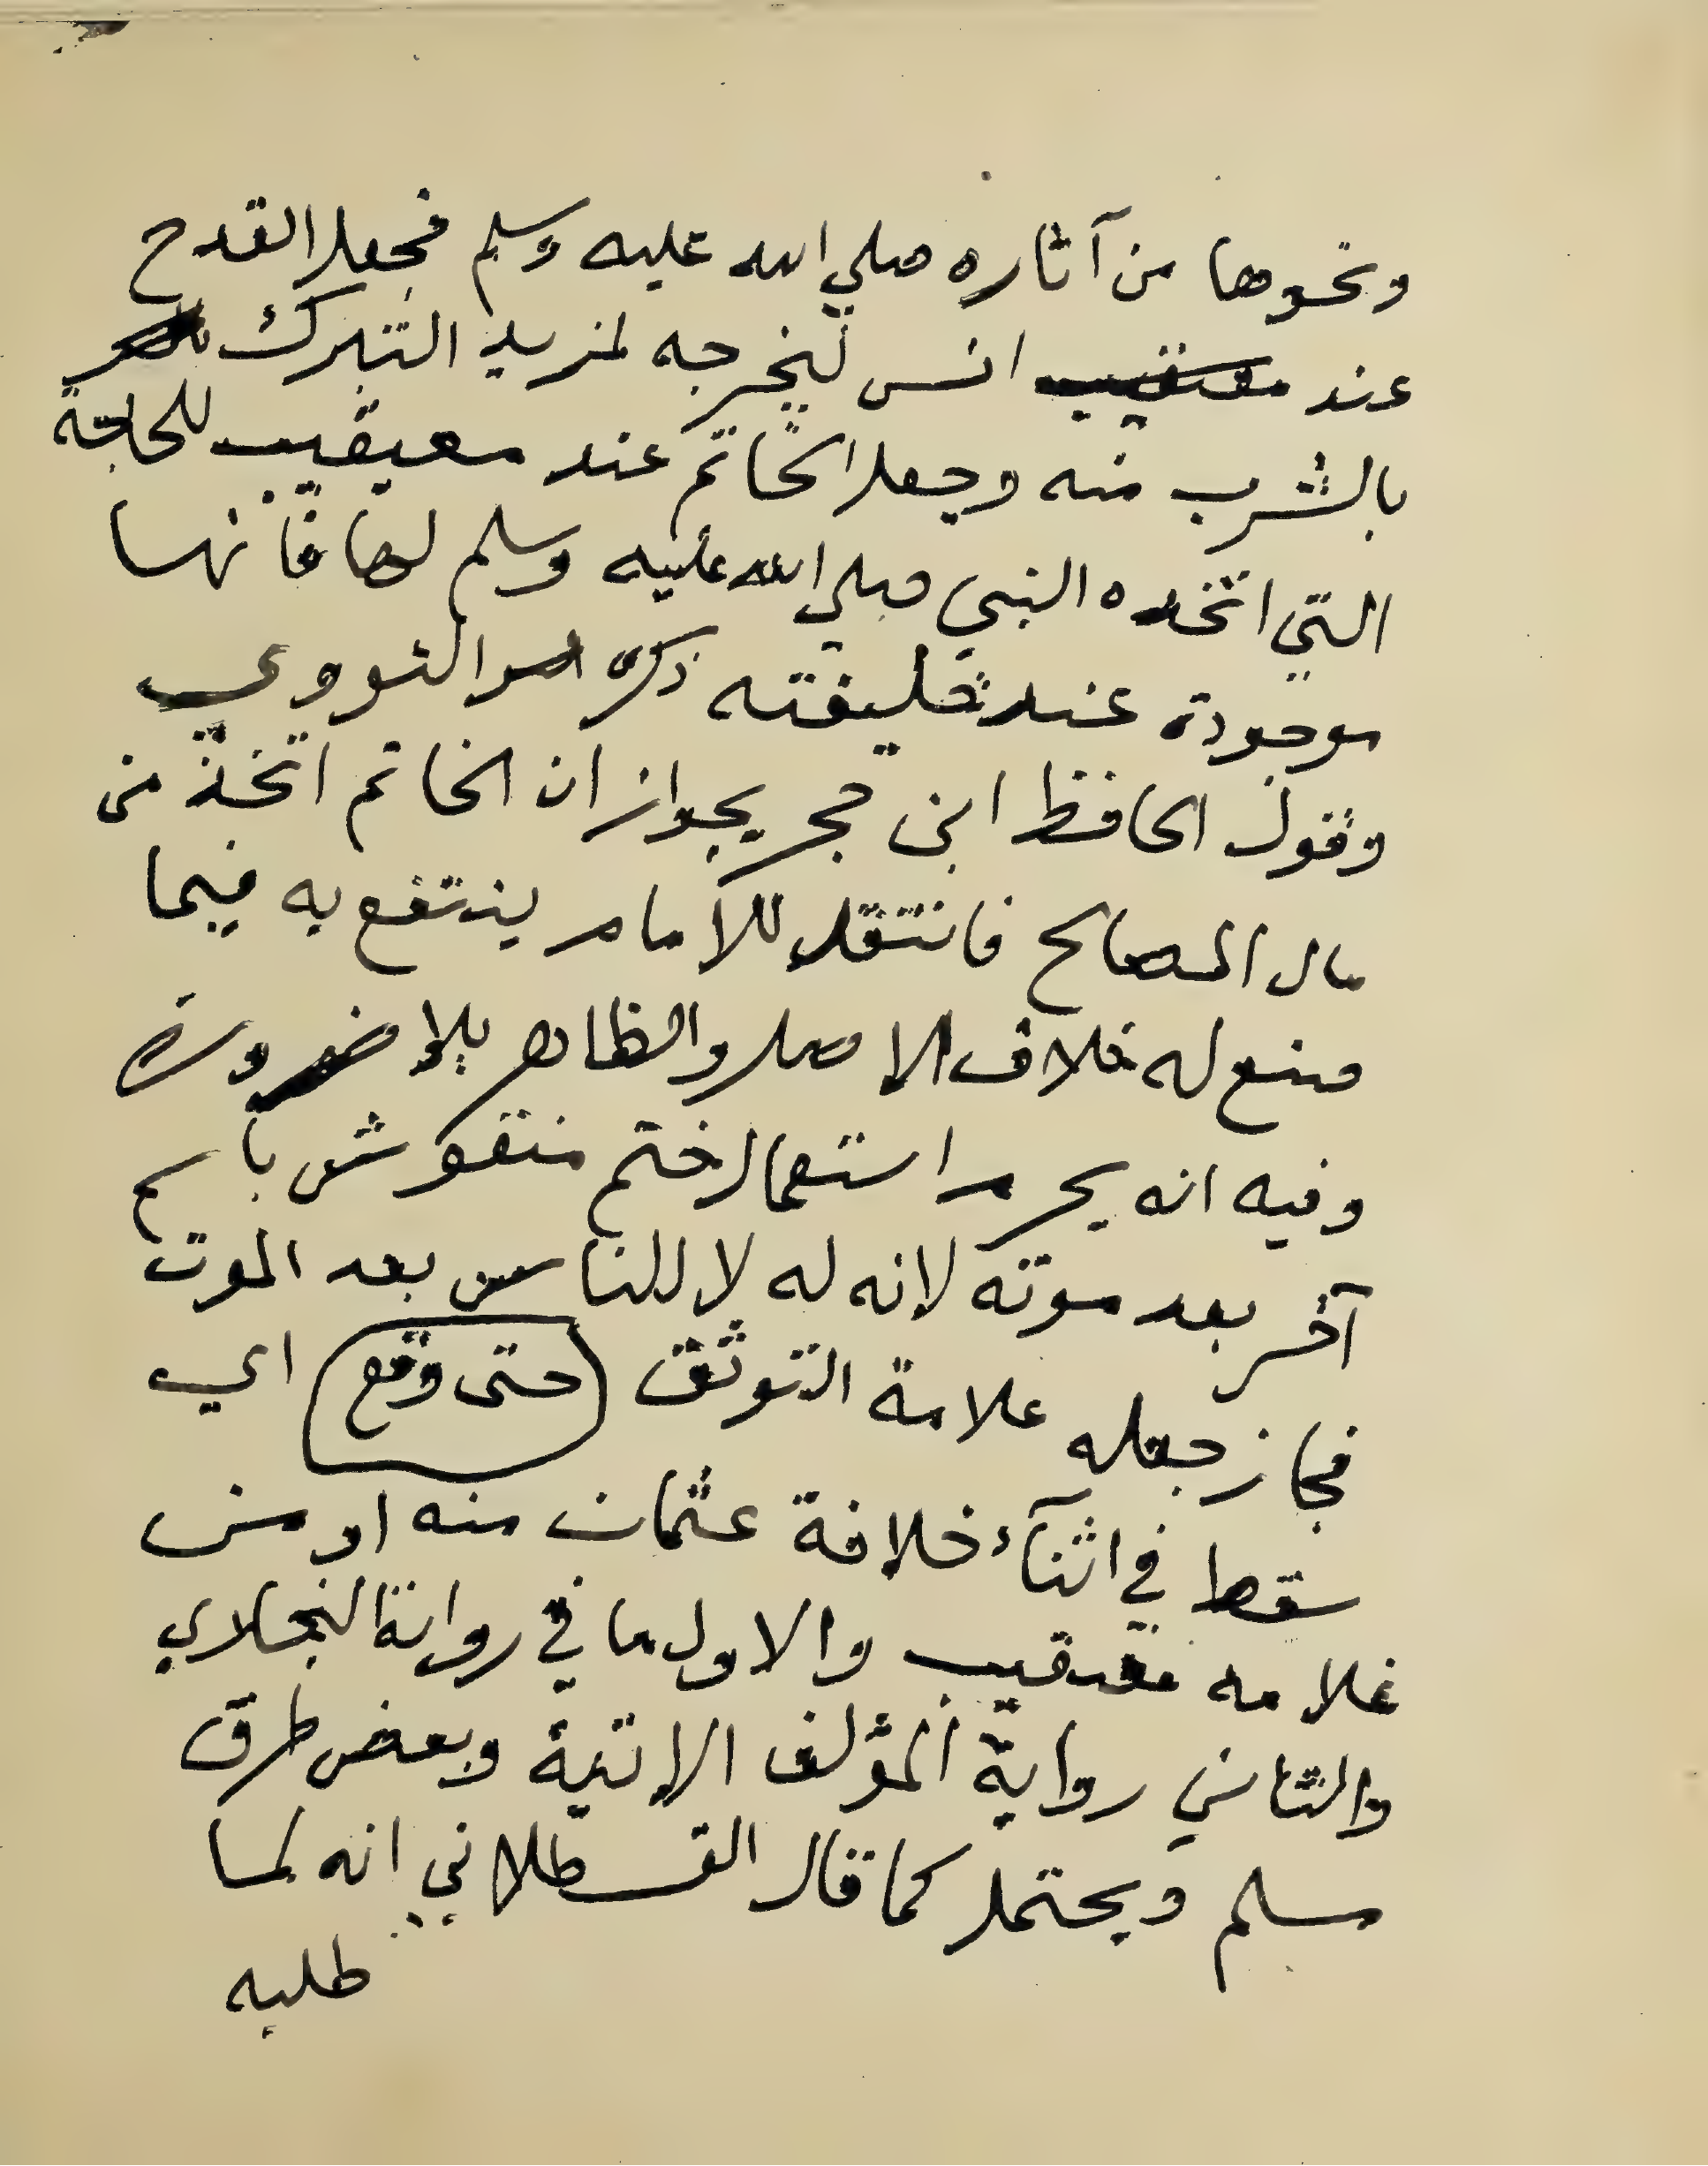 ونحوها من آثاره صلي الله عليه وسلم فجعل القدح
عند انس ليخرجه لمزيد التبرك
بالشرب منه وجعل الخاتم عند معيقيب للحاجة
التي اتخده النبي صلي الله عليه وسلم لها فانها
موجودة عند خليفته ذكره النووي
وقول الحافظ ابن حجر يجوز ان الخاتم اتخذ من
مال المصالح فانتقل للامام ينتفع به فيما
صنع له خلاف الاصل والظاهر بلا ضرورة
وفيه انه يحرم استعمال ختم منقوش باسم
آخر بعد موته لانه له لا للناس بعد الموت
فجاز جعله علامة التوثق حتى وقع اي
سقط في اثنآء خلافة عثمان منه او من
غلامه معيقيب والاول ما في رواية البخاري
والثاني رواية المؤلف الاتية وبعض طرق
مسلم ويحتمل كما قال القسطلاني انه لما
طلبه